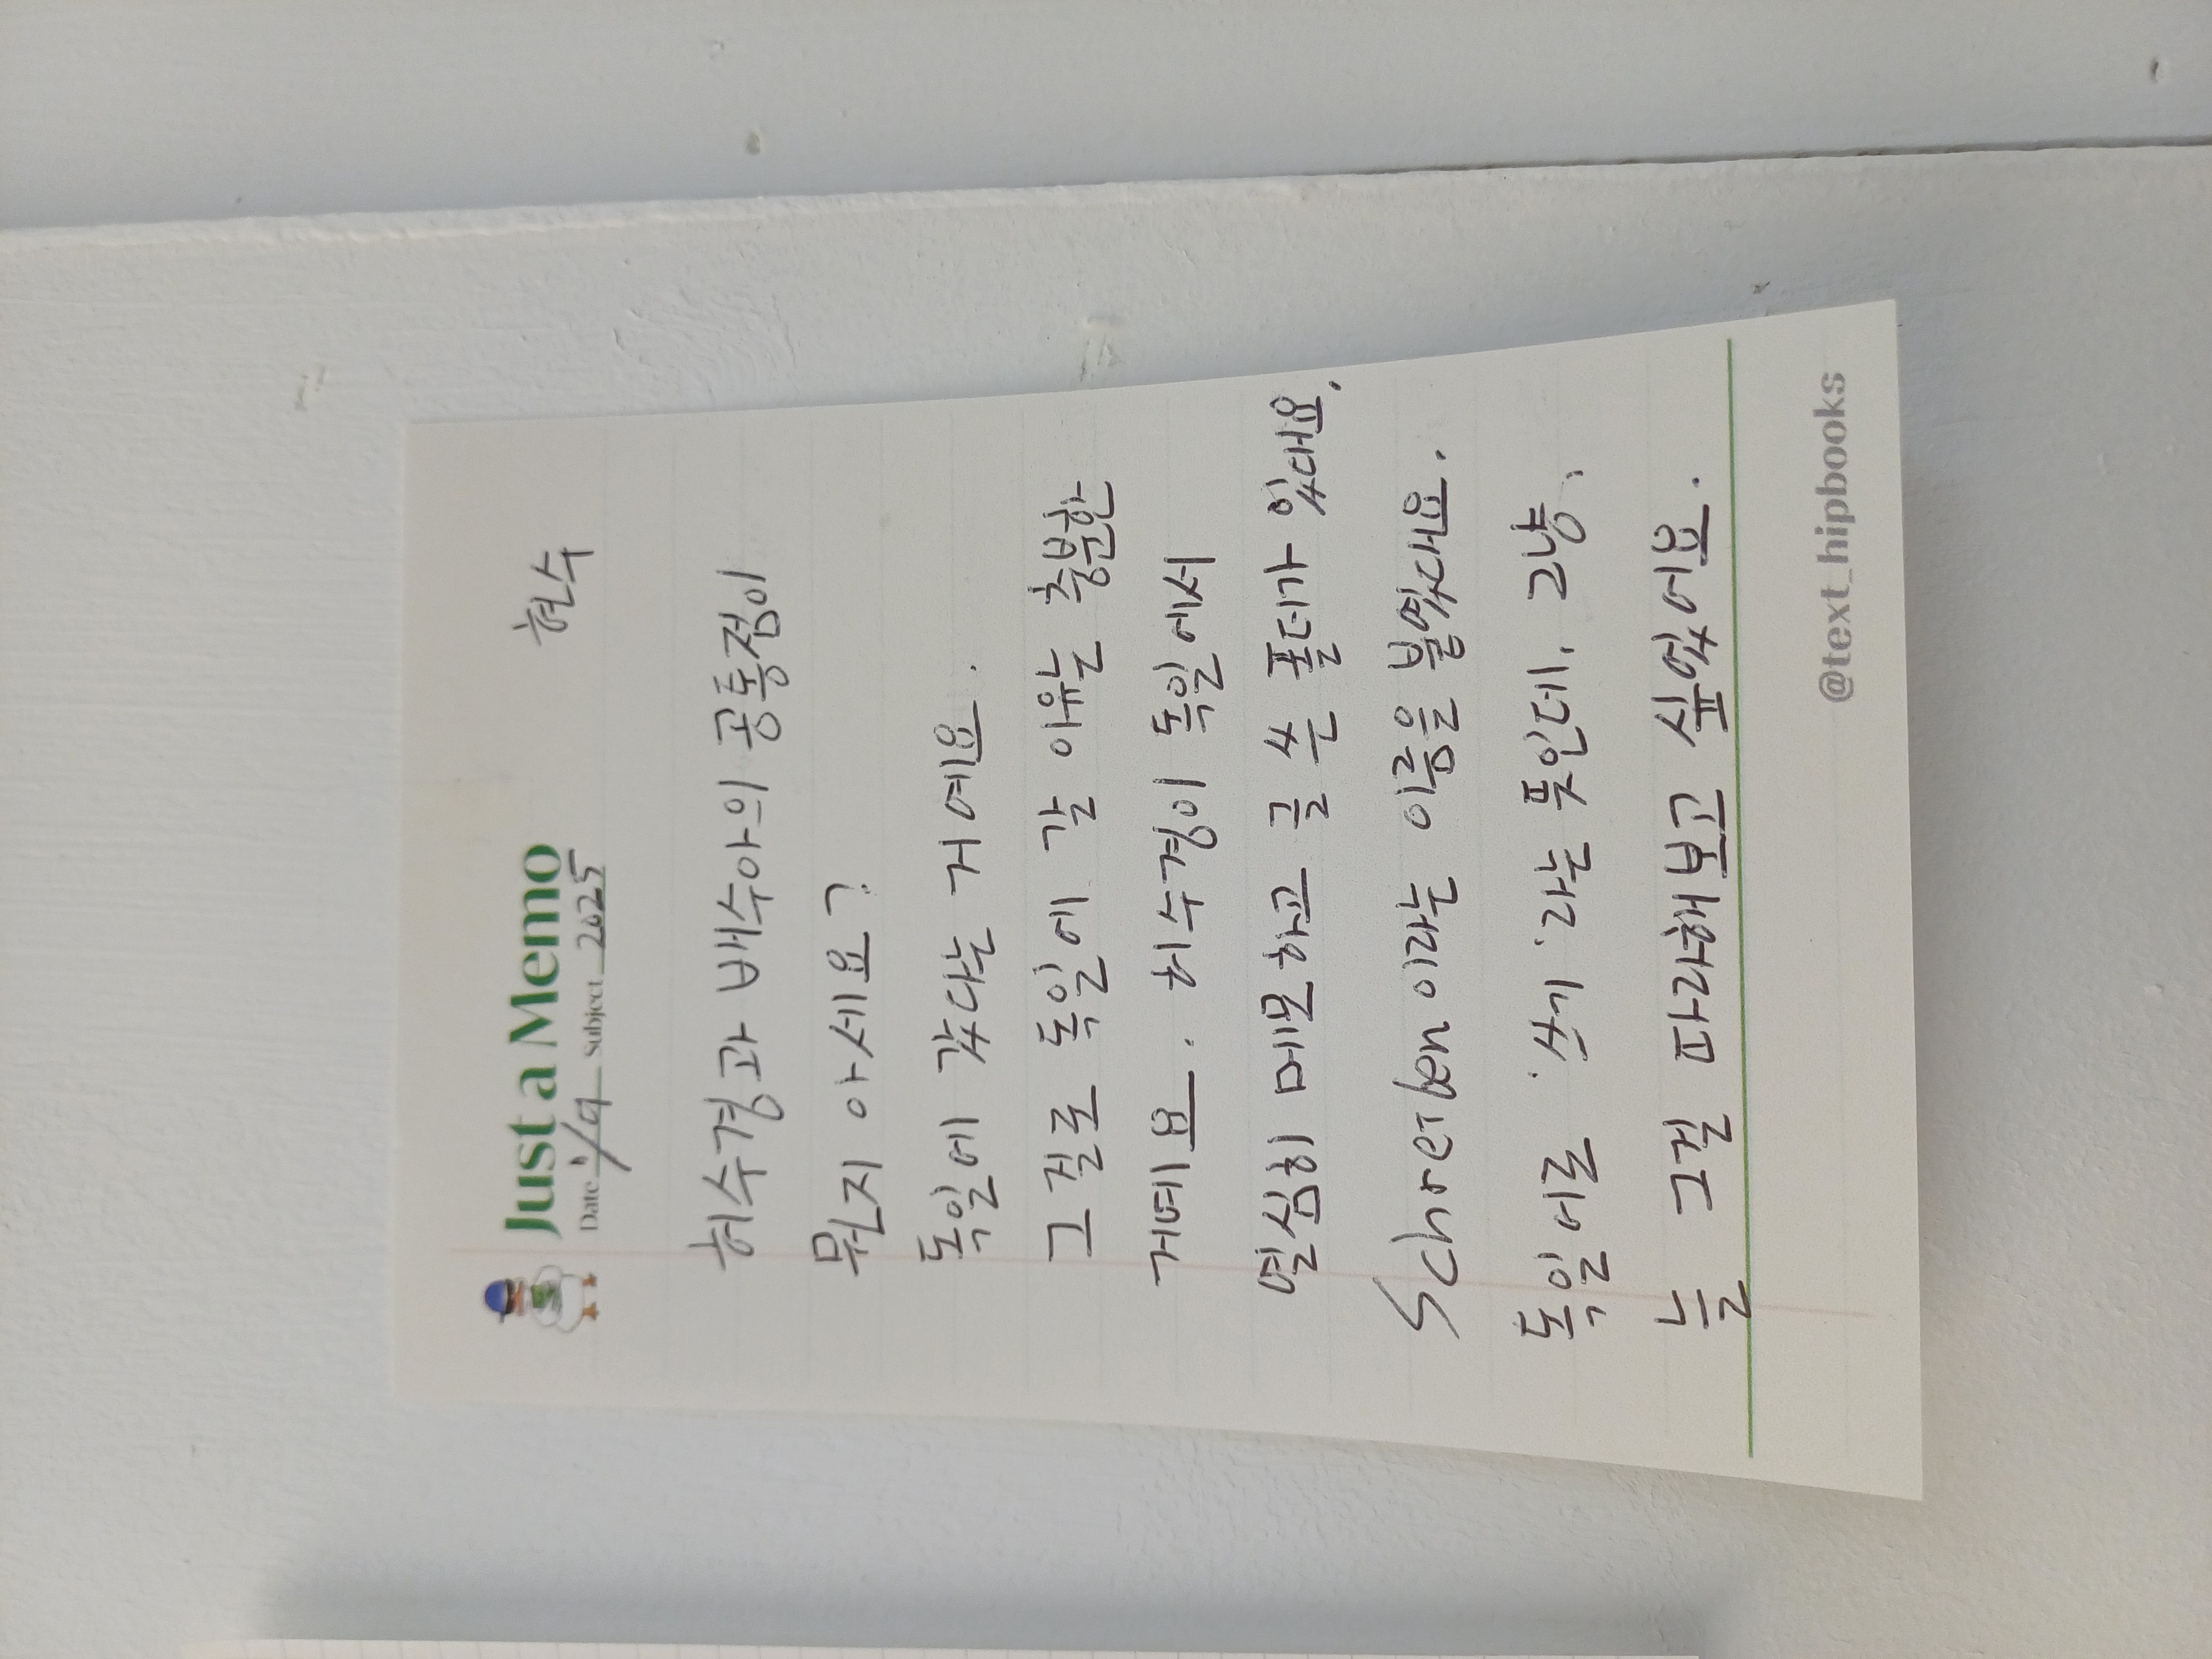 Just a Memo
Date 1/9 Subject 2025
현수
허수경과 배수아의 공통점이
뭔지 아세요?
독일에 갔다는 거예요.
그걸로 독일에 갈 이유는 충분한
거예요. 허수경이 독일에서
열심히 메모하고 글 쓴 폴더가 있대요.
Schreiben이라는 이름을 붙였대요.
독일어로 '쓰기'라는 뜻인데, 그냥,
늘 그걸 따라해보고 싶었어요.
@text_hipbooks